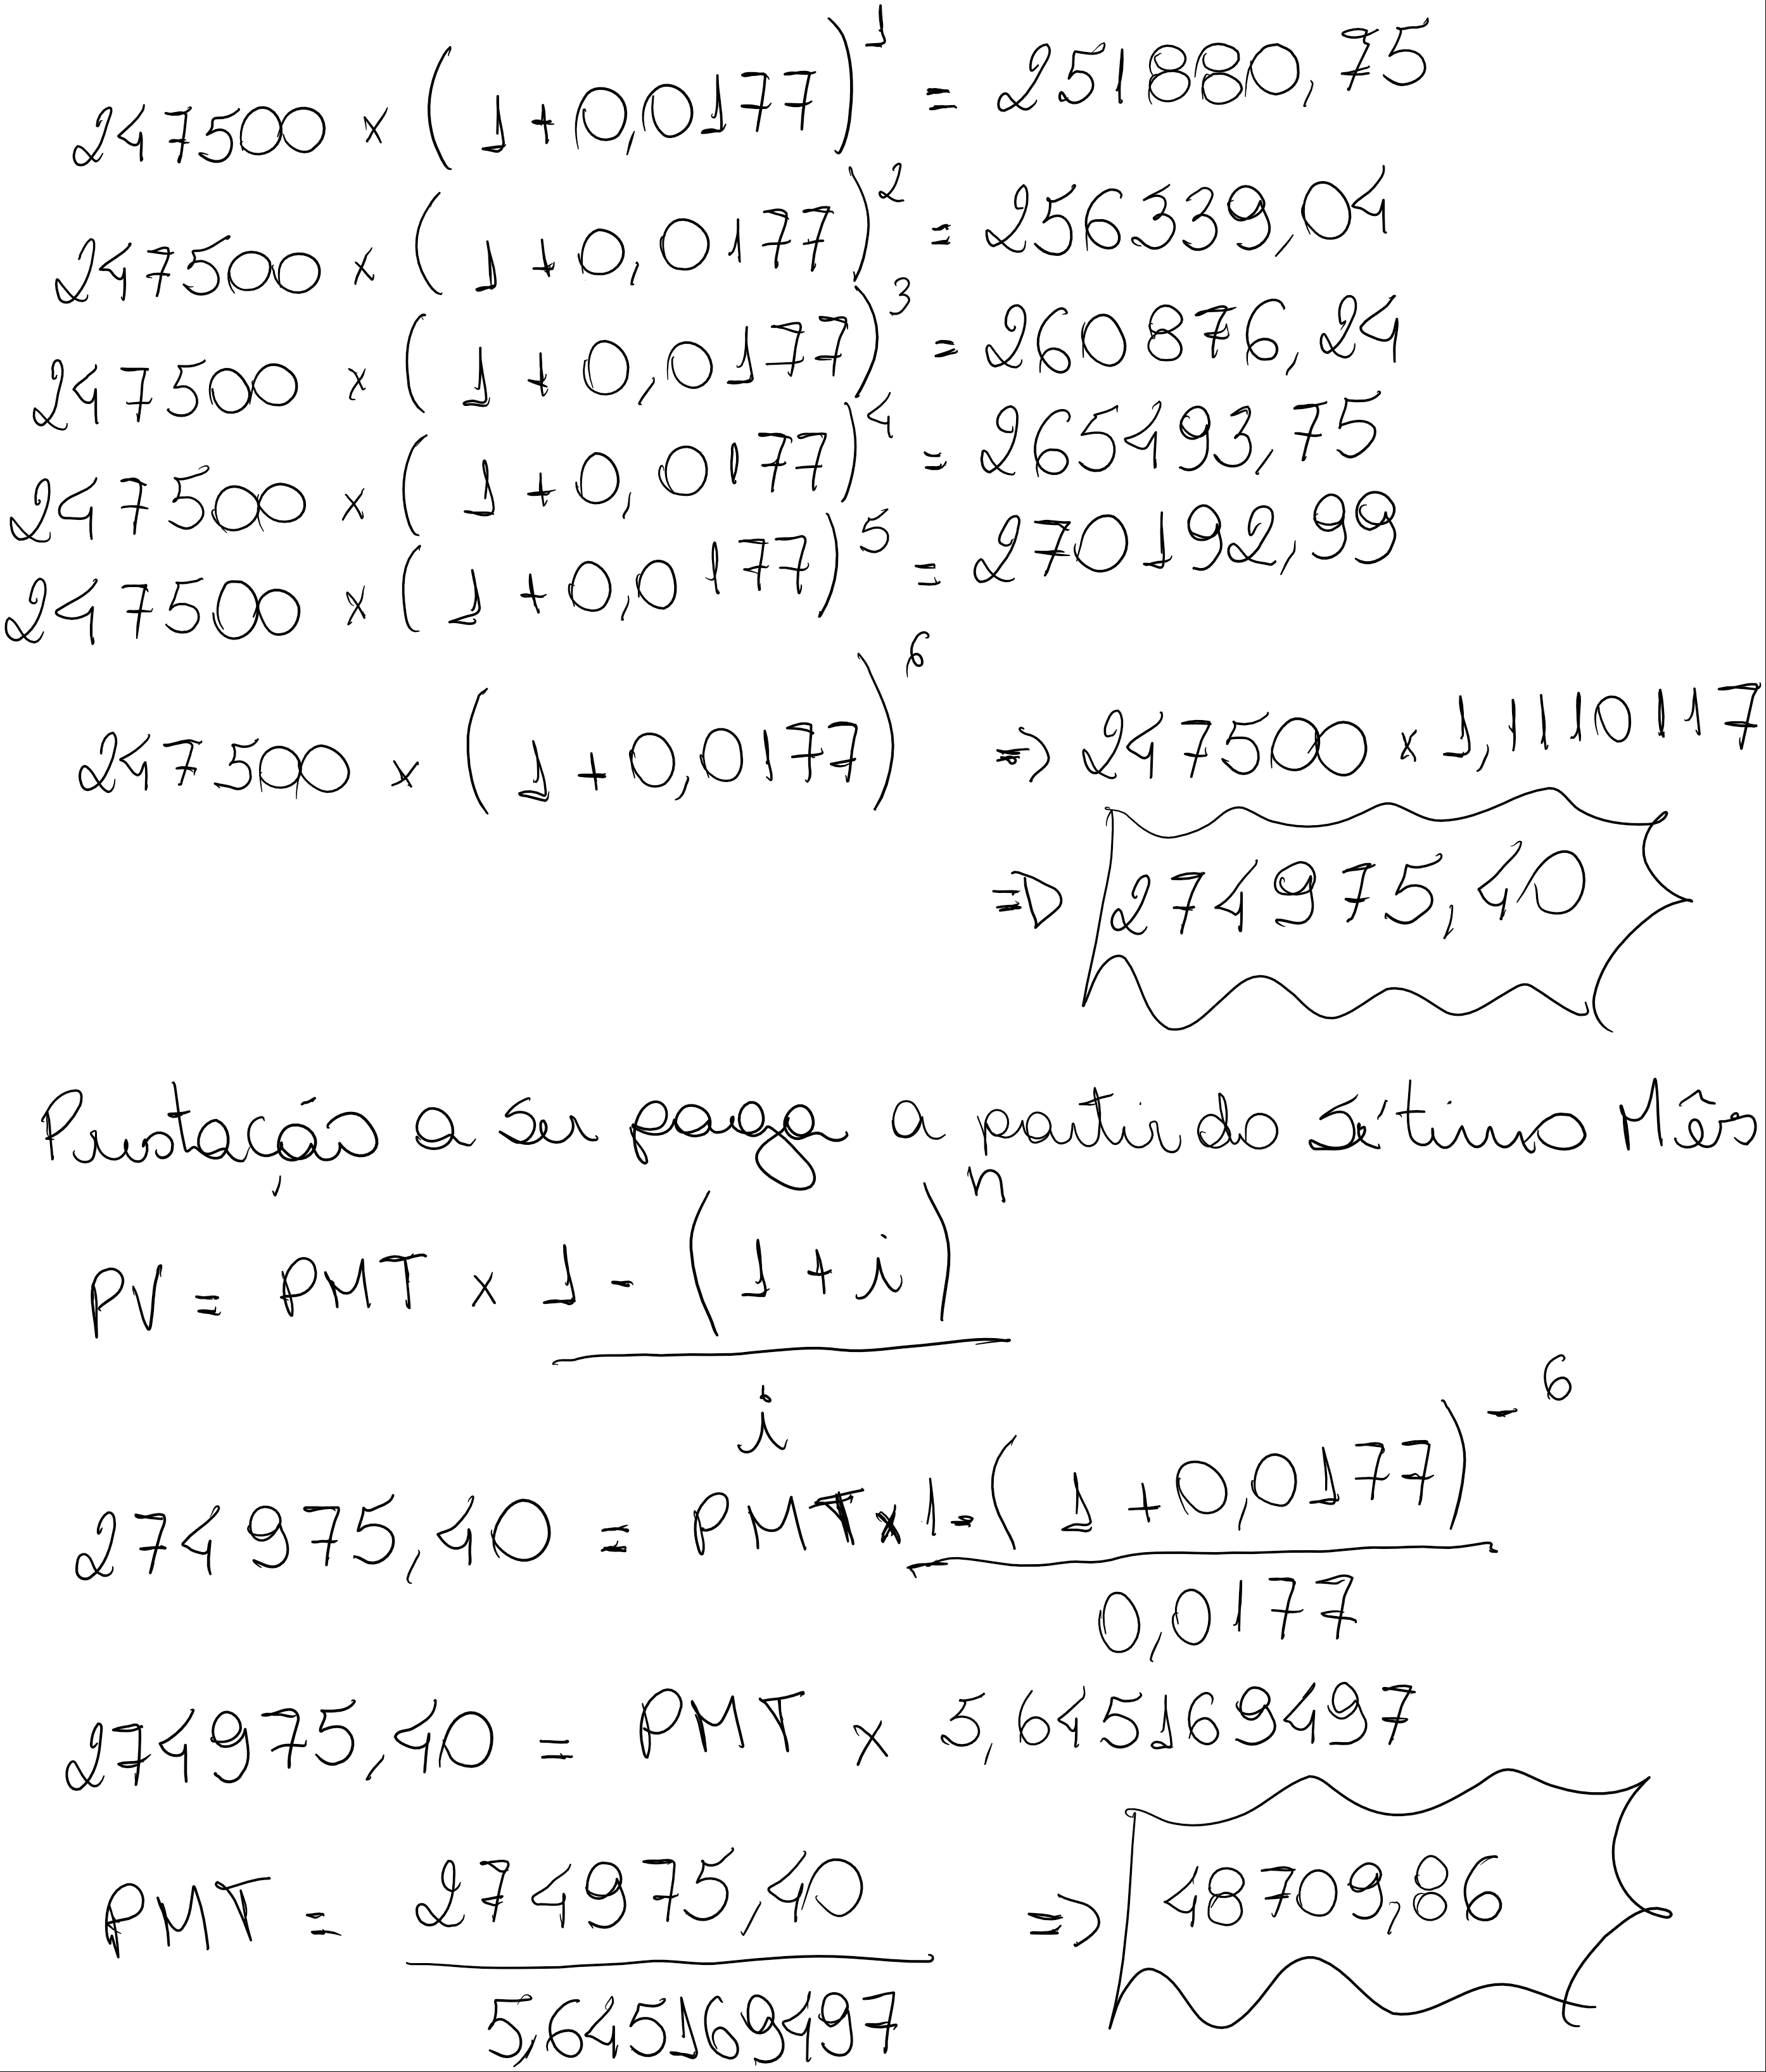 247500 × (1+0,0177)¹ = 251880,75
247500 × (1+0,0177)² = 256339,04
247500 × (1+0,0177)³ = 260876,24
247500 × (1+0,0177)⁴ = 265493,75
247500 × (1+0,0177)⁵ = 270192,99
247500 × (1+0,0177)⁶ ⇒ 247500 × 1,1110117
⇒ 274975,40
Prestação a ser paga a partir do sétimo Mês
PV = PMT × 1 - (1+i)ⁿ
i
274975,40 = PMT × 1 - (1+0,0177)⁻⁶
0,0177
274975,40 = PMT × 5,645169497
PMT = 274975,40 ⇒ 48709,86
5,645169497